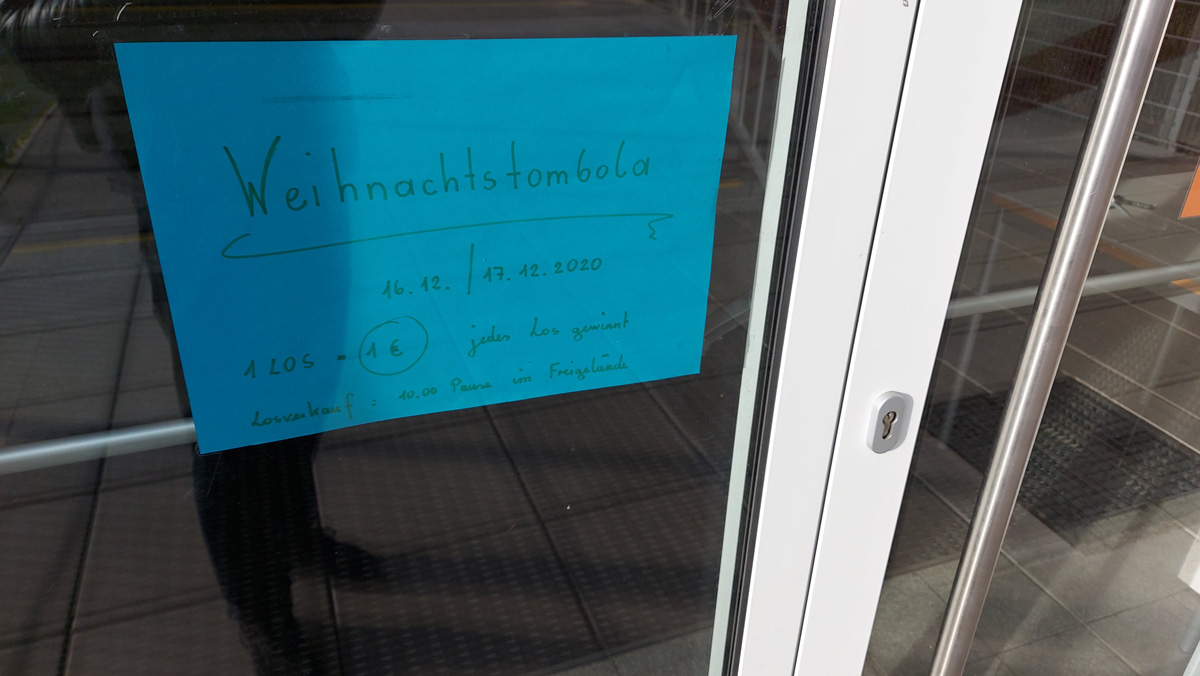 Weihnachtstombola
16.12. | 17.12.2020
1 LOS = 1 € jedes Los gewinnt
Losverkauf : 10.00 Pause im Freigelände